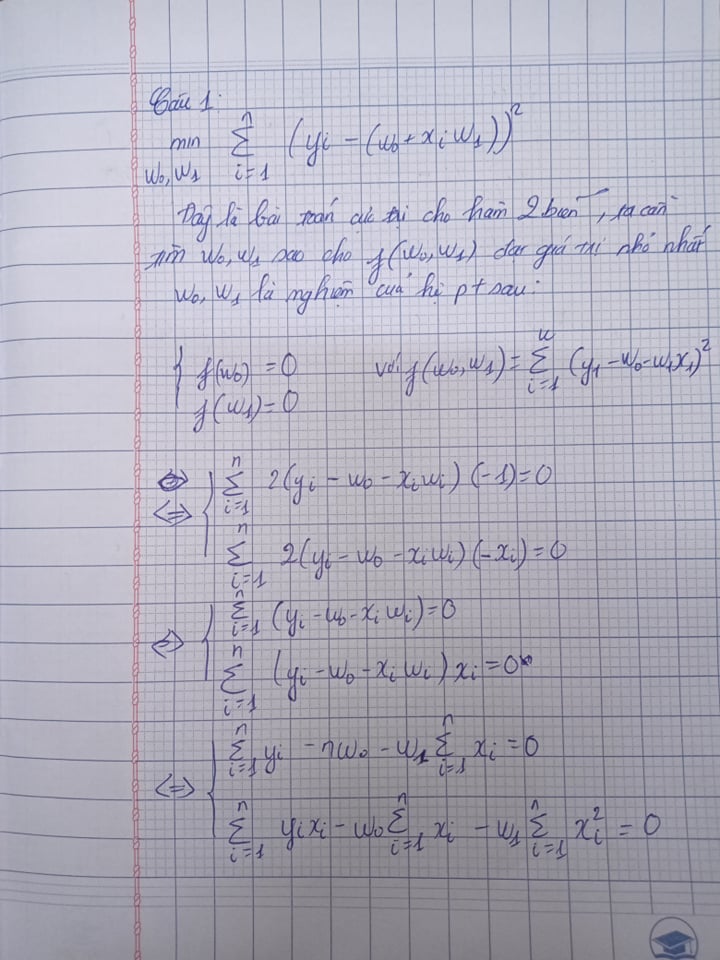 Câu 1:
min_{w₀, w₁} ∑_{i=1}^{n} (yi − (w₀ + xi w₁))²
Đây là bài toán cực trị cho hàm 2 biến, ta cần
tìm w₀, w₁ sao cho f(w₀, w₁) đạt giá trị nhỏ nhất
w₀, w₁ là nghiệm của hệ pt sau:
{ f(w₀) = 0 với f(w₀, w₁) = ∑_{i=1}^{n} (y₁ − w₀ − w₁x₁)²
f(w₁) = 0
⇔ { ∑_{i=1}^{n} 2(yi − w₀ − xi wi) (−1) = 0
∑_{i=1}^{n} 2(yi − w₀ − xi wi) (−xi) = 0
⇔ { ∑_{i=1}^{n} (yi − w₀ − xi wi) = 0
∑_{i=1}^{n} (yi − w₀ − xi wi) xi = 0
⇔ { ∑_{i=1}^{n} yi − nw₀ − w₁ ∑_{i=1}^{n} xi = 0
∑_{i=1}^{n} yi xi − w₀ ∑_{i=1}^{n} xi − w₁ ∑_{i=1}^{n} xi² = 0